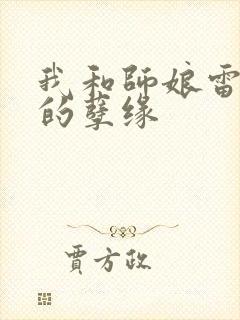 我和師娘雷
的孽缘
賈方政